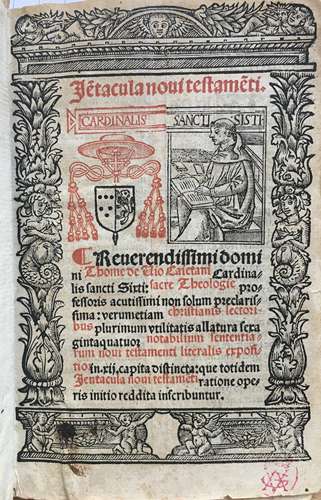 Jētacula noui testamēti.
CARDINALIS SANCTI SISTI
Reuerendissimi domi
ni Thome de Uio Caietani Cardina
lis sancti Sixti: sacre Theologie pro
fessoris acutissimi non solum preclaris
sima: verumetiam christianis lectori
bus plurimum vtilitatis allatura sexa
gintaquatuor notabilium sententia
rum noui testamenti literalis exposi
tio in.xij. capita distincta: que totidem
Jentacula noui testamēti ratione ope
ris initio reddita inscribuntur.